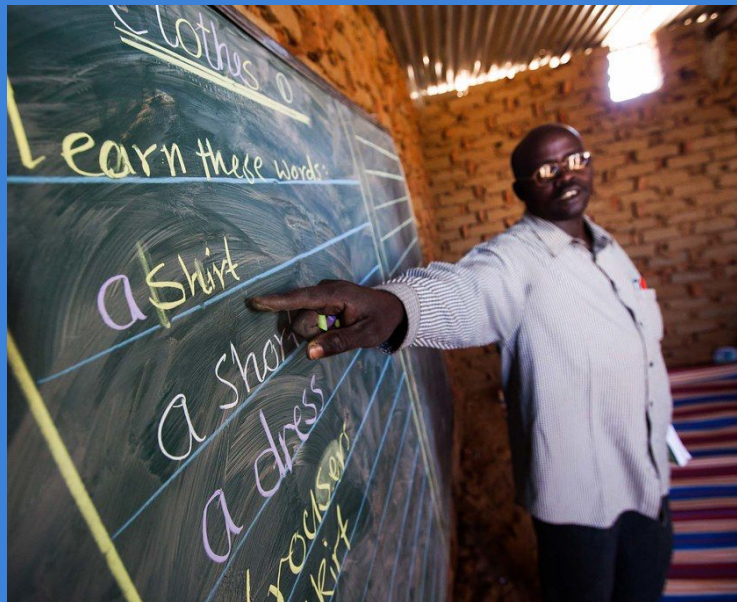 Clothes
Learn these words:
a shirt
a shor
a dress
trousers